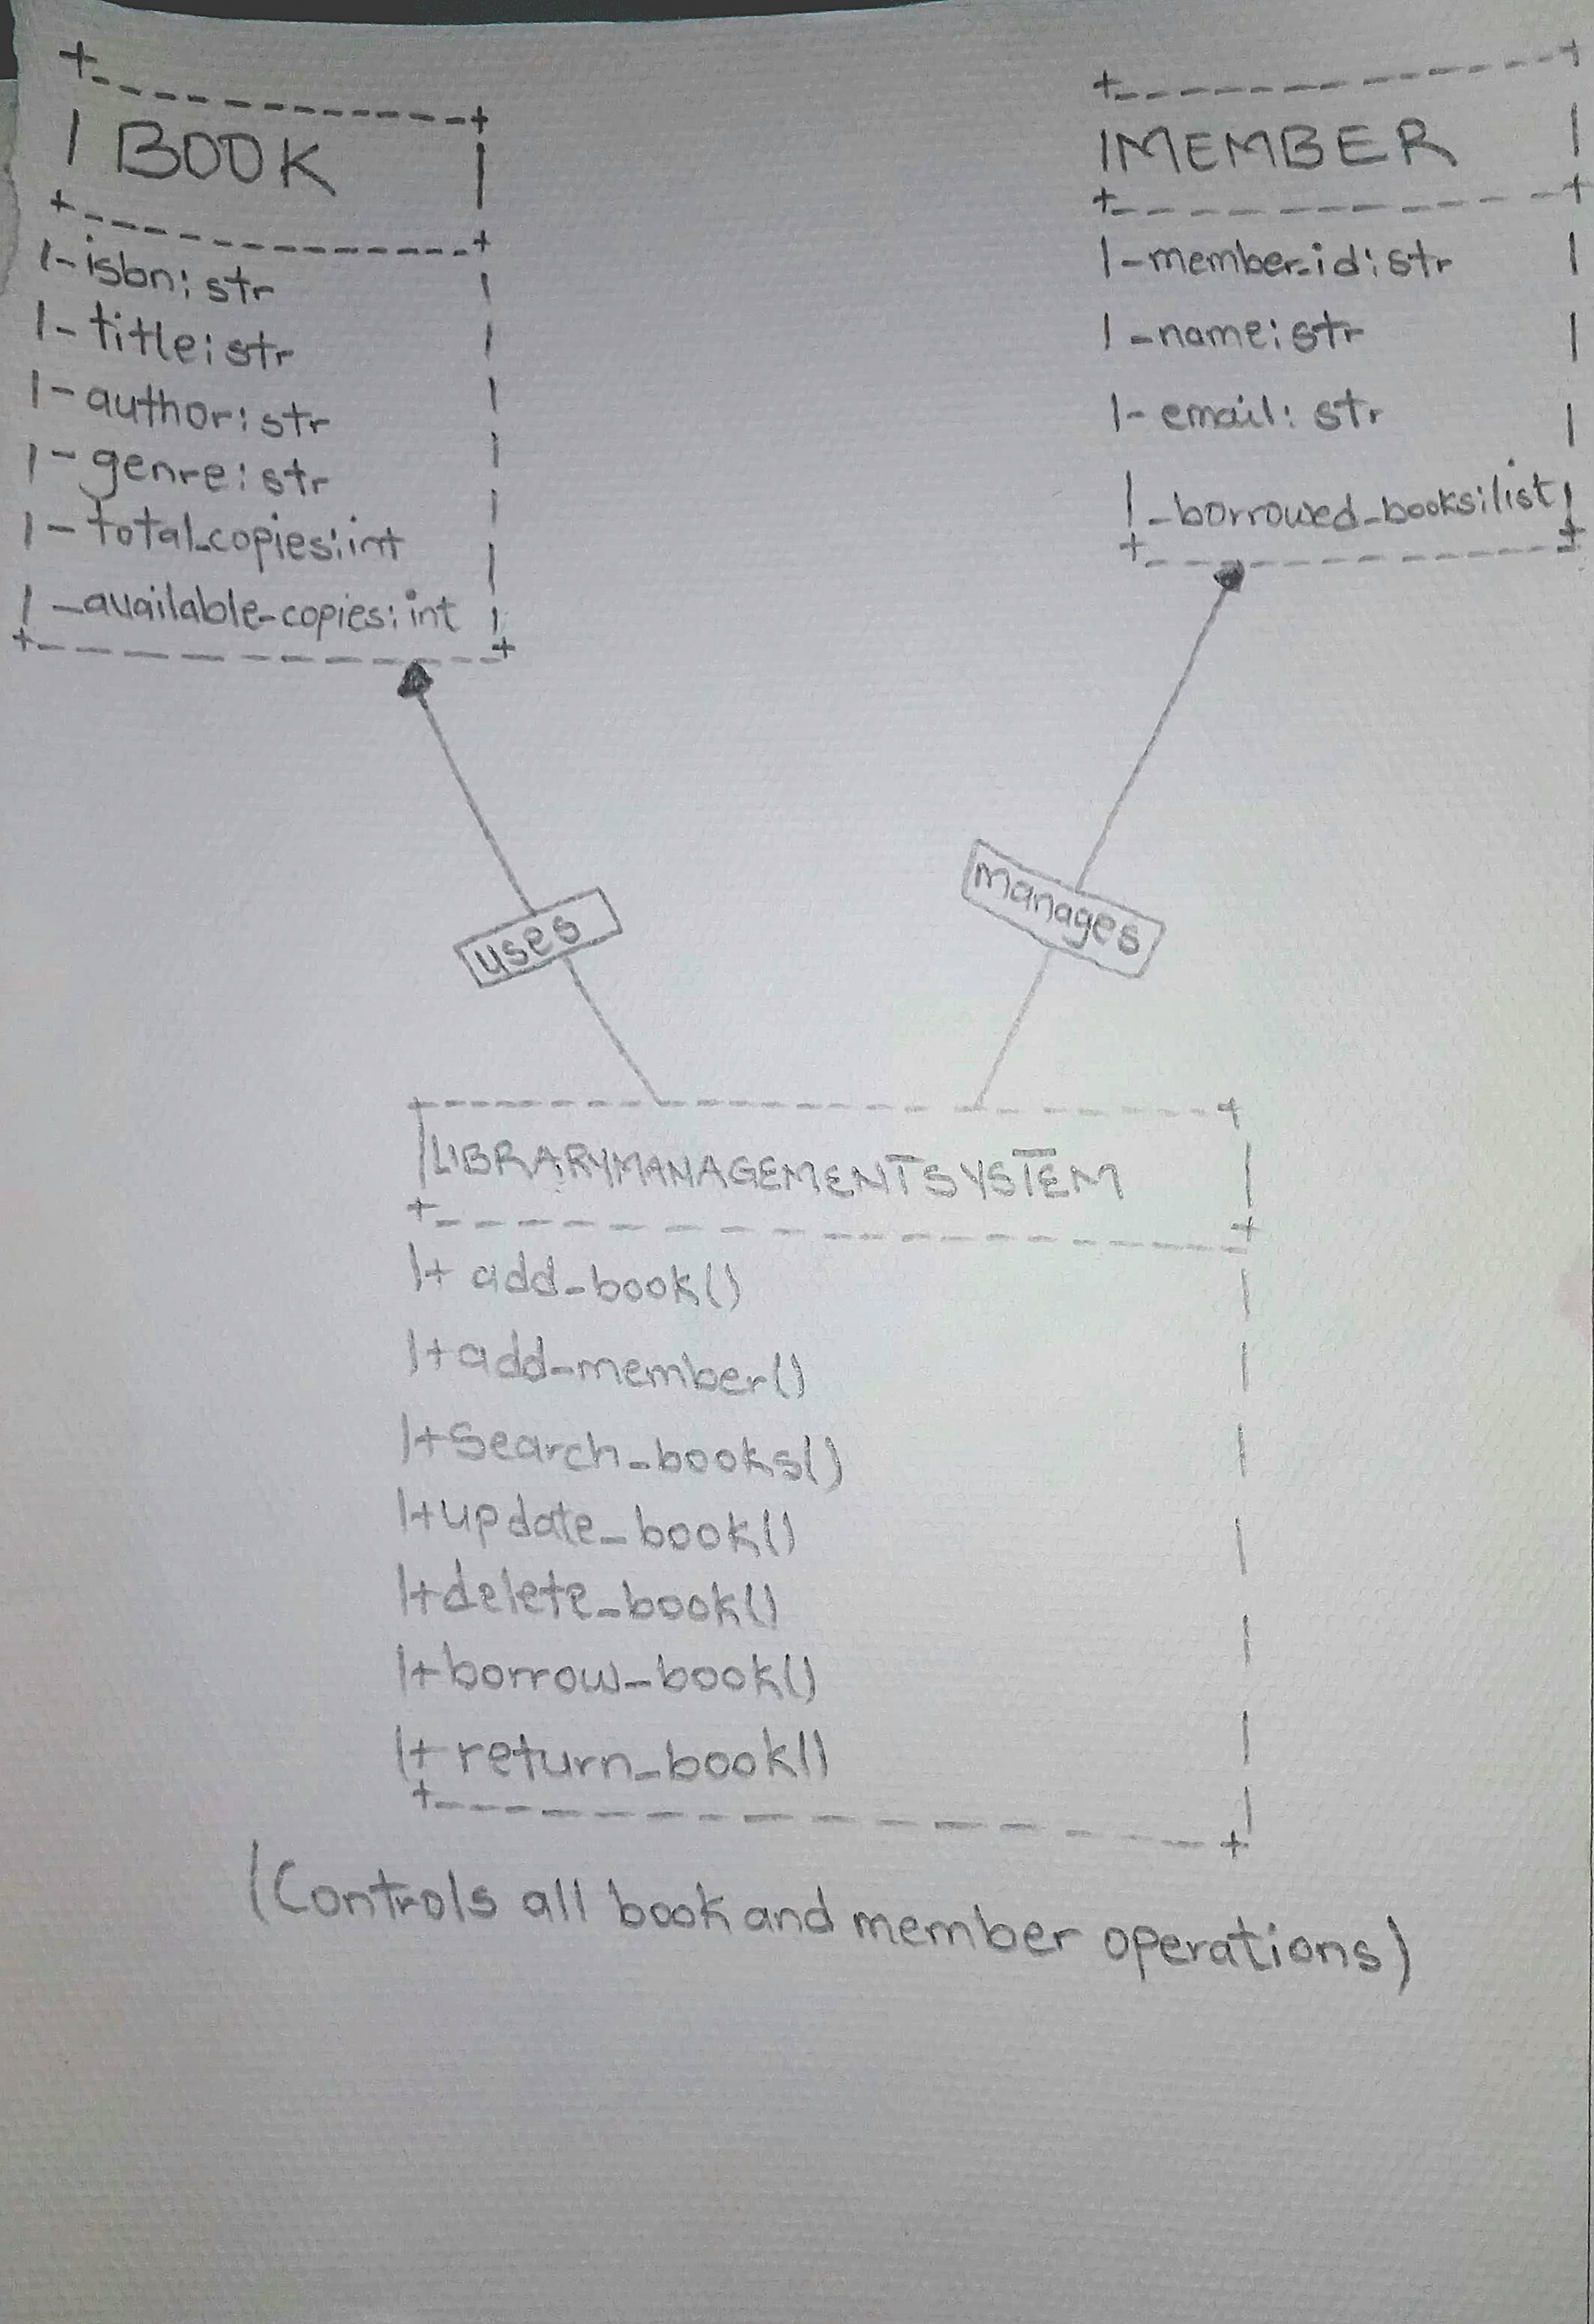 BOOK
-isbn: str
-title: str
-author: str
-genre: str
-total_copies: int
-available_copies: int
MEMBER
-member_id: str
-name: str
-email: str
-borrowed_books: list
uses
manages
LIBRARYMANAGEMENTSYSTEM
+ add_book()
+add_member()
+Search_books()
+update_book()
+delete_book()
+borrow_book()
+ return_book()
(Controls all book and member operations)